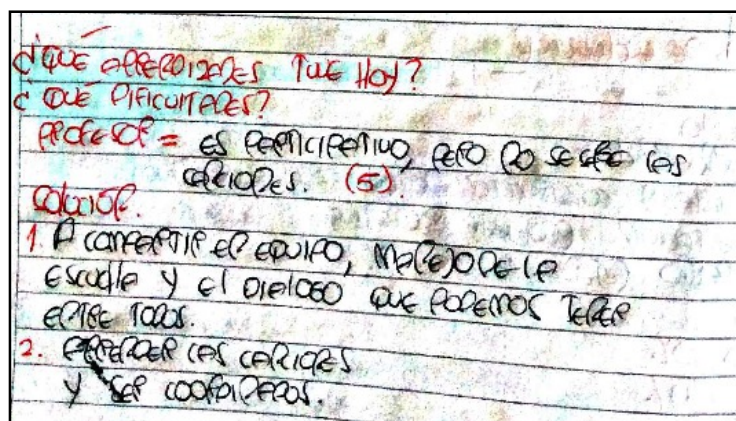 ¿QUÉ APRENDIZAJES TUVE HOY?
¿QUÉ DIFICULTADES?
PROFESOR = ES PARTICIPATIVO, PERO NO SE SABE LAS
CANCIONES. (5).
SOLUCIÓN.
1. A COMPARTIR EN EQUIPO, MANEJO DE LA
ESCUCHA Y EL DIALOGO QUE PODEMOS TENER
ENTRE TODOS.
2. APRENDER LAS CANCIONES
Y SER COORDINADOS.